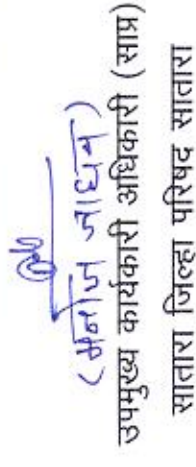 (मनोज जाधव)
उपमुख्य कार्यकारी अधिकारी (साप्र)
सातारा जिल्हा परिषद सातारा